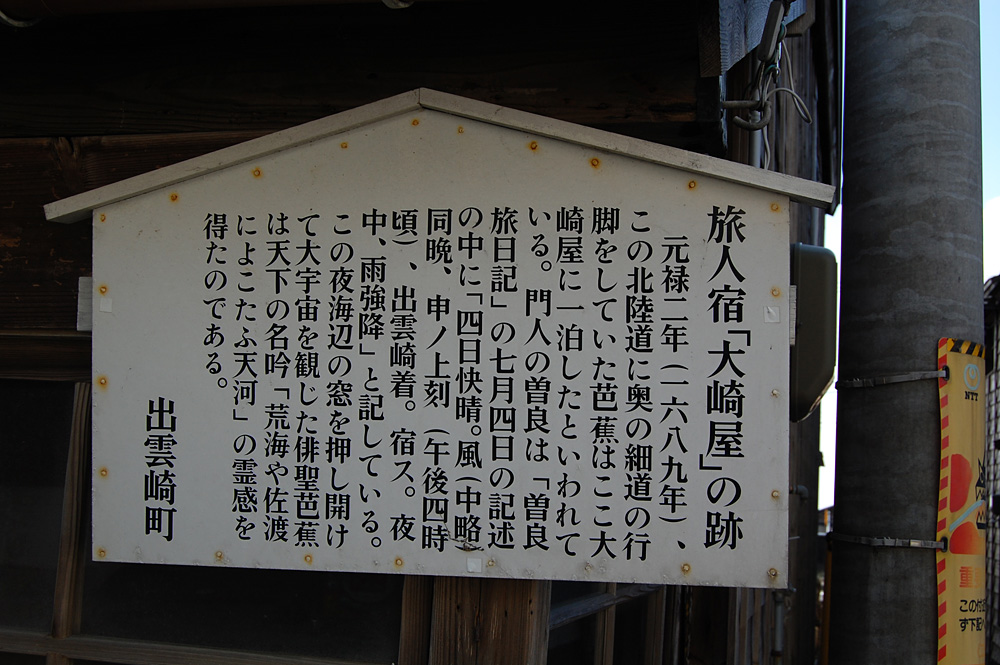 旅人宿「大崎屋」の跡
元禄二年(一六八九年)、
この北陸道に奥の細道の行
脚をしていた芭蕉はここ大
崎屋に一泊したといわれて
いる。門人の曽良は「曽良
旅日記」の七月四日の記述
の中に「四日快晴。風(中略)
同晩、申ノ上刻(午後四時
頃)、出雲崎着。宿ス。夜
中、雨強降」と記している。
この夜海辺の窓を押し開け
て大宇宙を観じた俳聖芭蕉
は天下の名吟「荒海や佐渡
によこたふ天河」の霊感を
得たのである。
出雲崎町
NTT
重
この付
ず下記